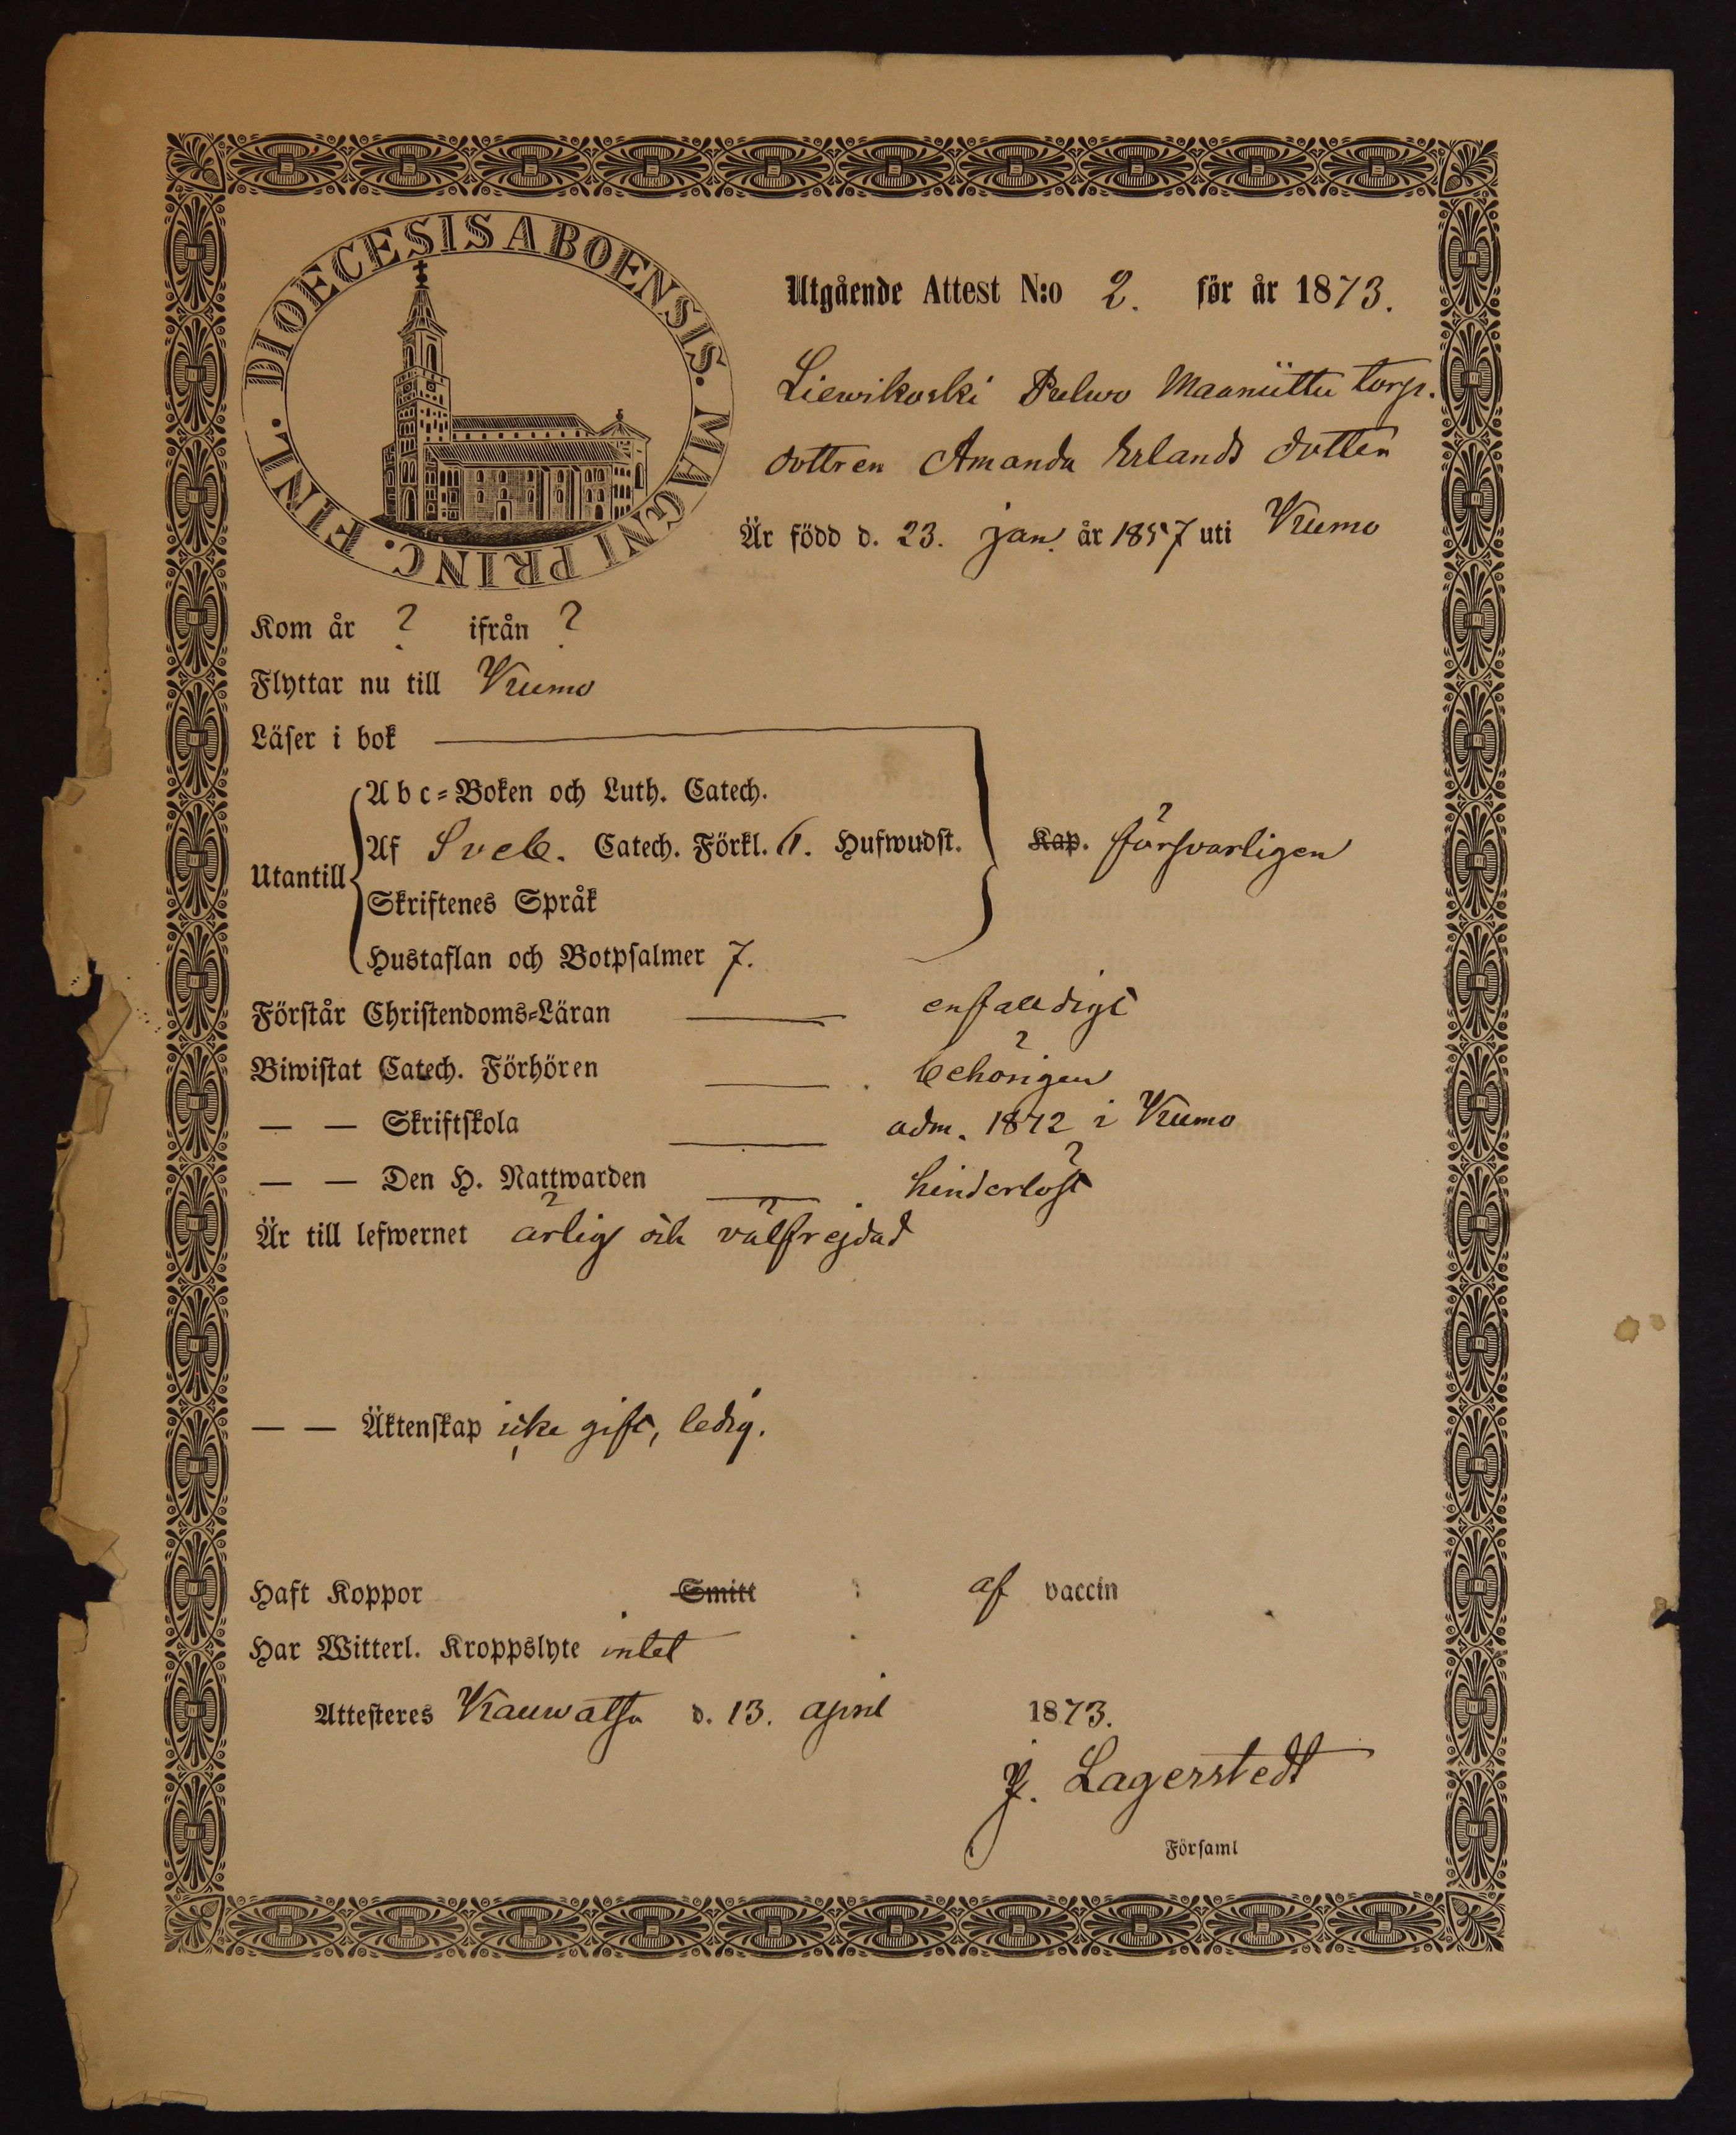 DIOECESIS ABOENSIS. MAGNI PRINC. FINL.
Utgående Attest N:o 2. för år 1873.
Liewikoski Pelwo Maaniittu torp.
dottren Amanda Erlands dotter
Är född d. 23. jan. år 1857 uti Kumo
Kom år ? ifrån ?
Flyttar nu till Kumo
Läser i bok
Abc-Boken och Luth. Catech.
Utantill Af Sveb. Catech. Förkl. 6. Hufwudst. Kap. försvarligen
Skriftenes Språk
Hustaflan och Botpsalmer 7.
Förstår Christendoms-Läran enfaldigt
Biwistat Catech. Förhören behörigen
— — Skriftskola adm. 1872 i Kumo
— — Den H. Nattwarden hinderlöst
Är till lefwernet ärlig och välfrejdad
— — Äktenskap icke gift, ledig.
Haft Koppor Smitt af vaccin
Har Witterl. Kroppslyte intet
Attesteres Kauwatsa d. 13. april 1873.
J. Lagerstedt
Församl